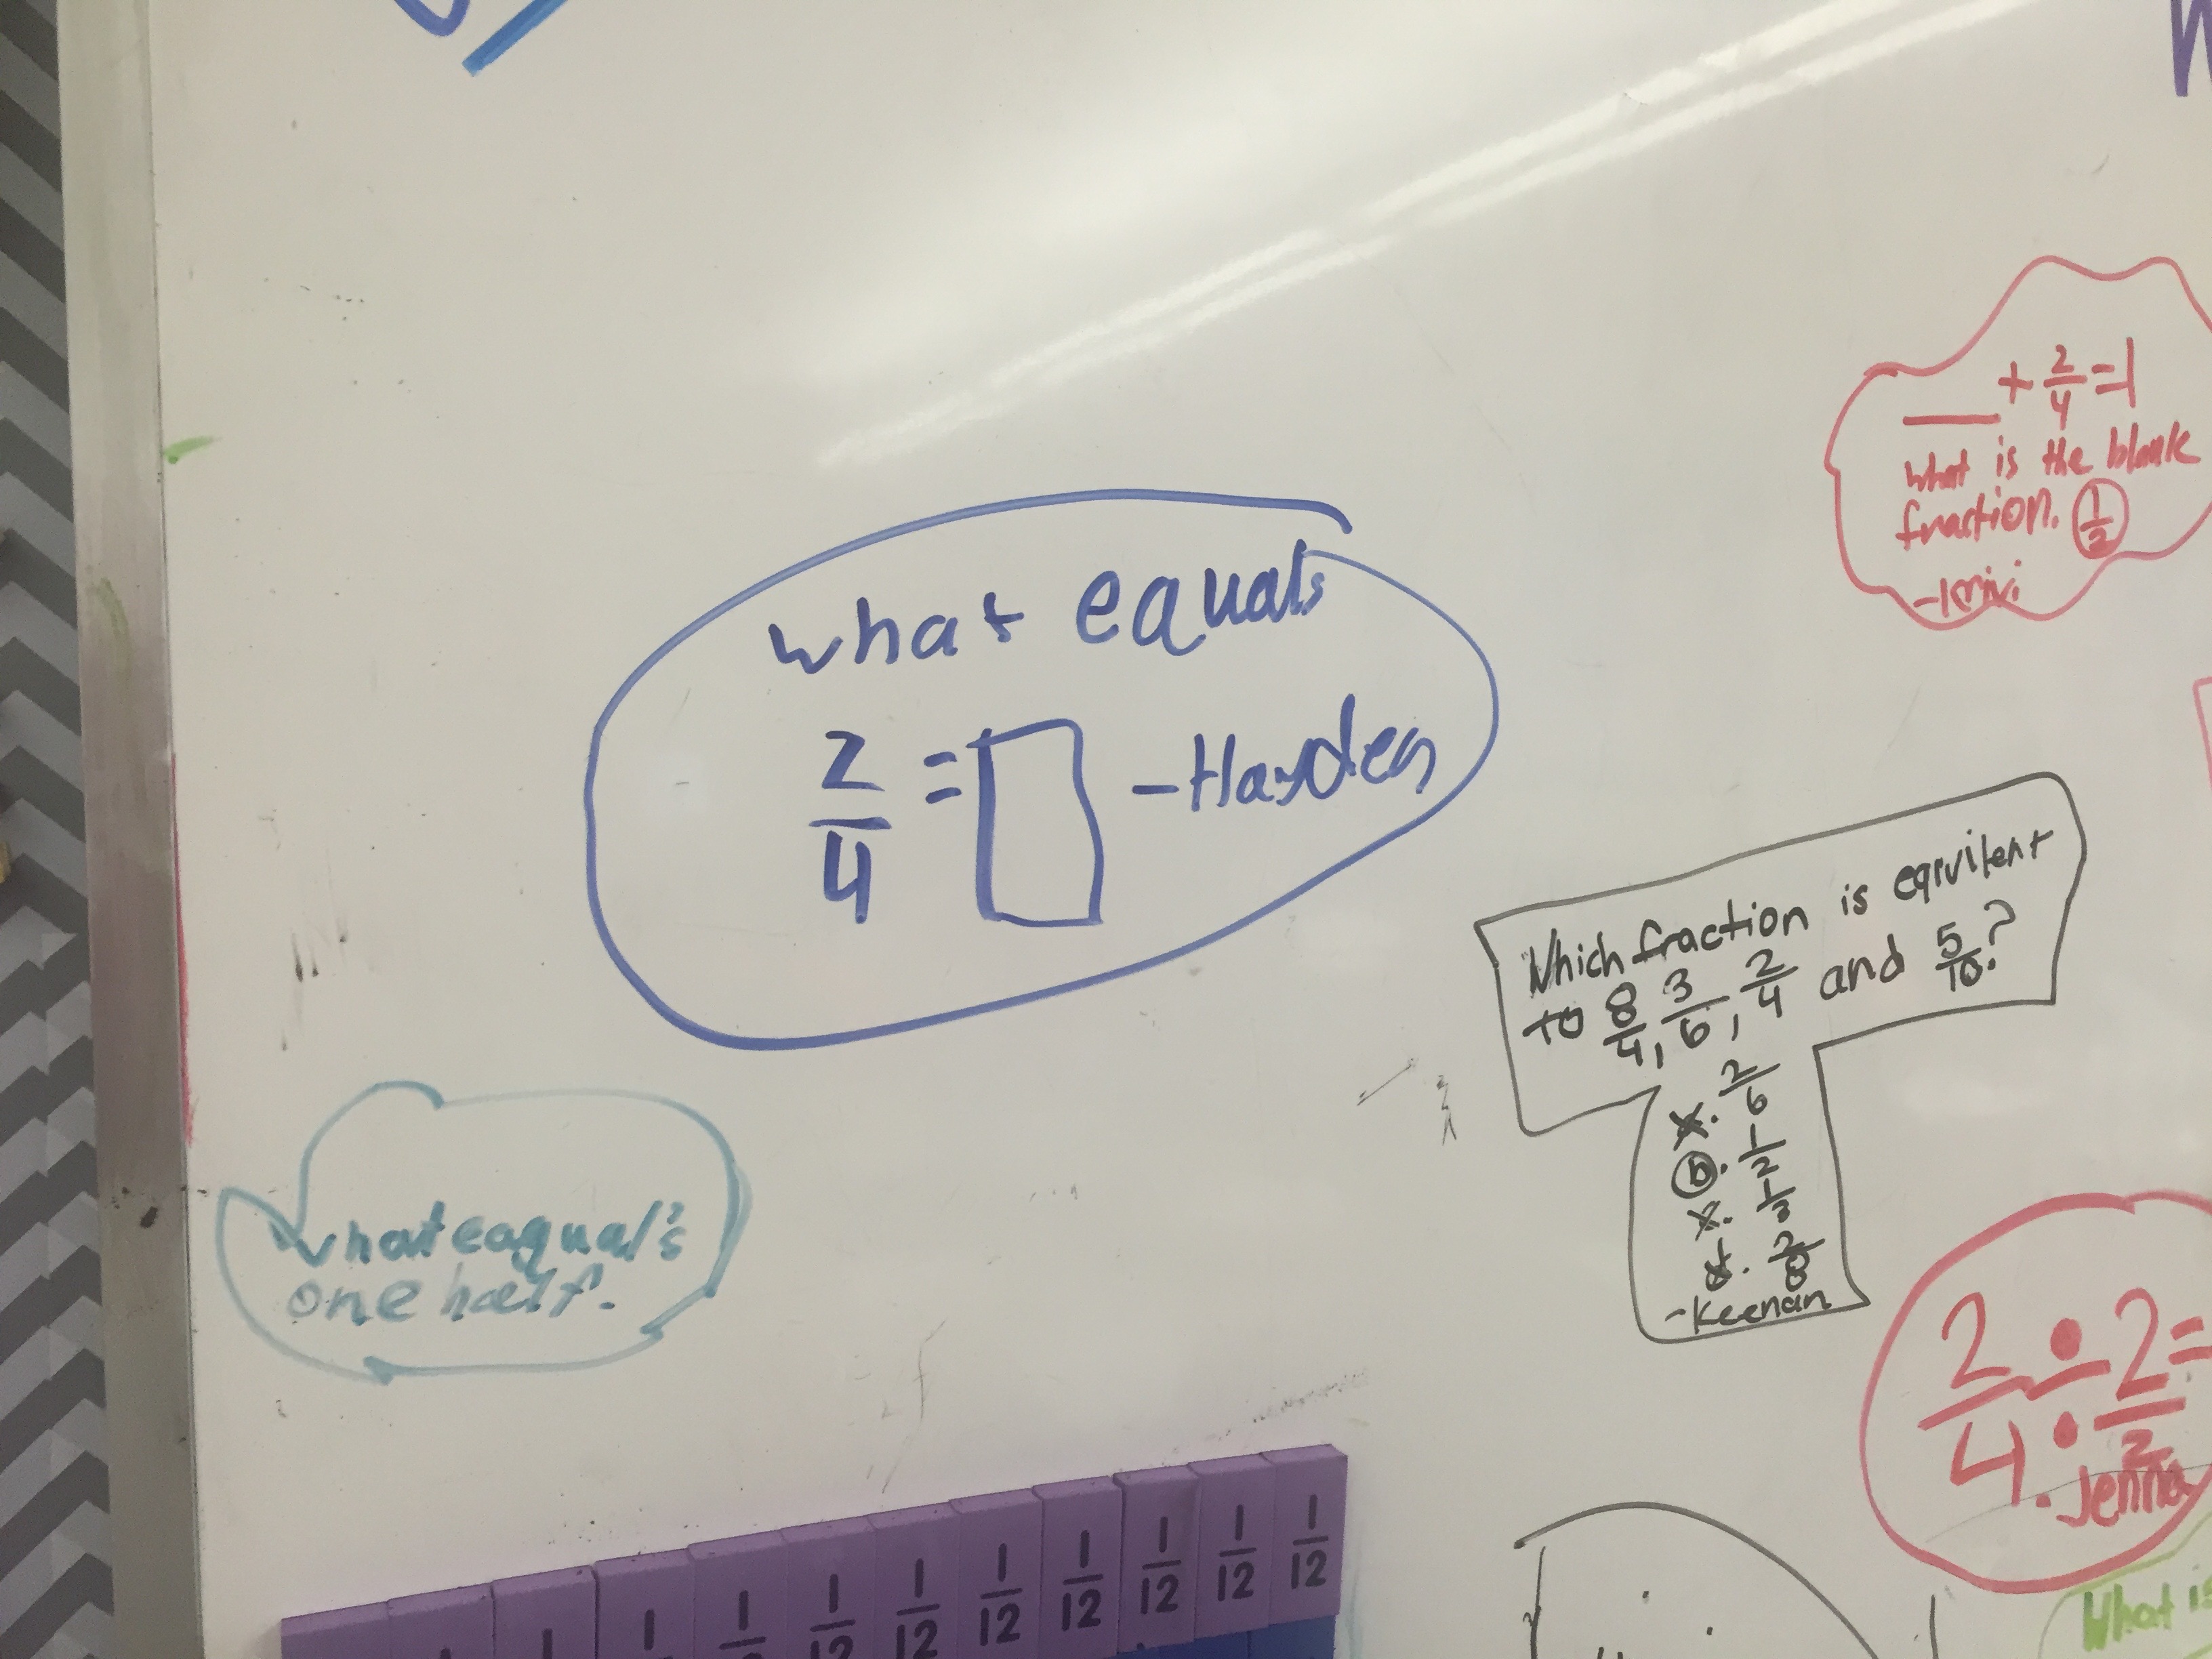 what equals
2/4 = □ -Hayden
__ + 2/4 = 1
what is the blank
fraction. 1/2
Which fraction is eqivilent
to 8/4, 3/6, 2/4 and 5/10?
2/6
b. 1/2
1/3
2/8
-Keenan
what eaqual's
one half.
2/4 ÷ 2/2 =
. Jenna
What is
1/12 1/12 1/12 1/12 1/12 1/12 1/12 1/12